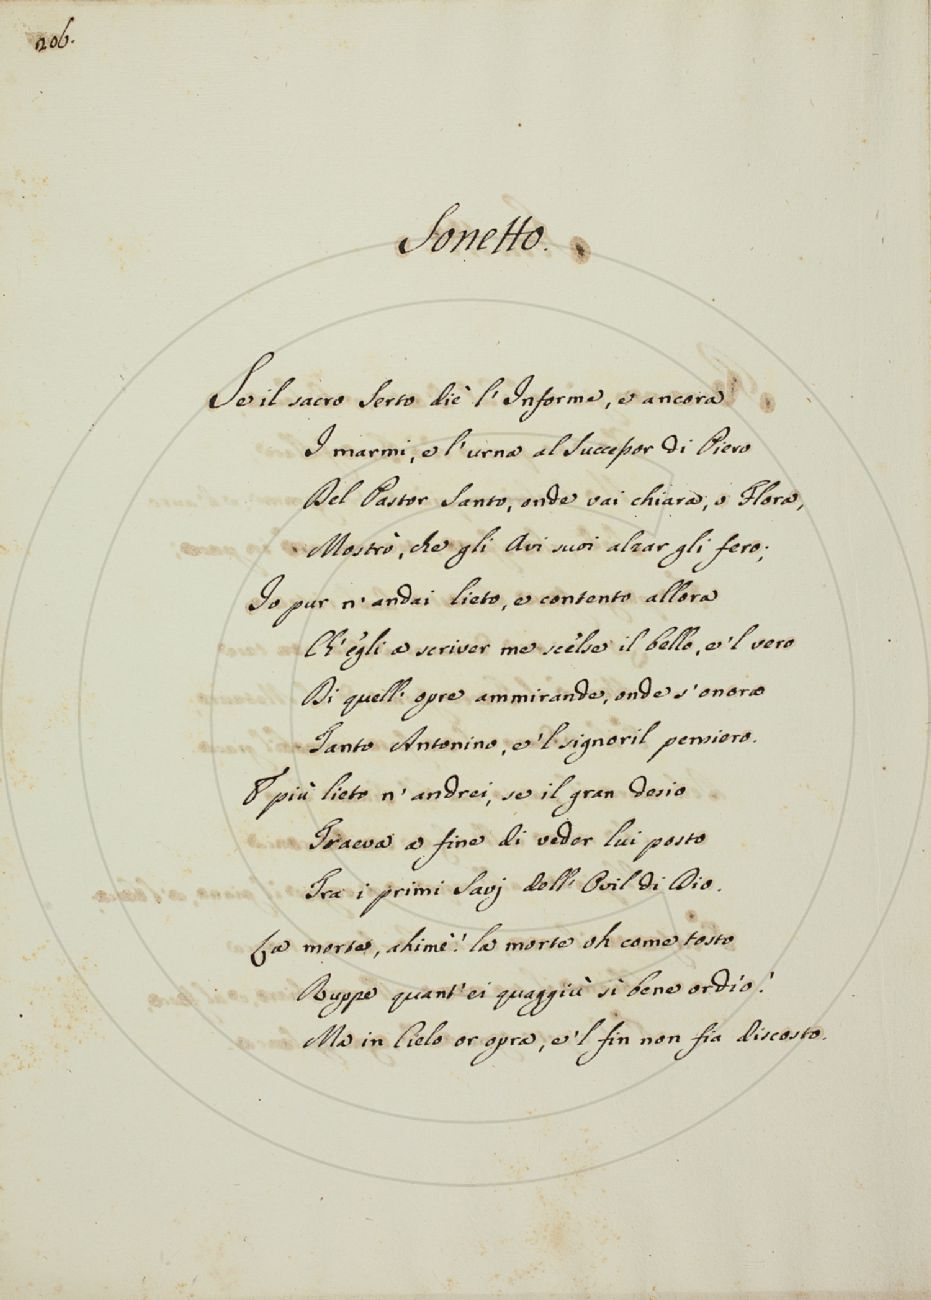 206.
Sonetto.
Se il sacro Serto diè l' Informe, e ancora
I marmi, e l'urna al Successor di Piero
Del Pastor Santo, onde vai chiara, o Flora,
Mostrò, che gli Avi suoi alzar gli fero;
Io pur n' andai lieto, e contento allora
Ch' egli a scriver me scelse il bello, e'l vero
Di quell' opre ammirande, onde s' onora
Tanto Antonino, e'l signoril pensiero.
E più lieto n' andrei, se il gran desio
Traeva a fine di veder lui posto
Tra i primi Savj dell' Ovil di Dio.
La morte, ahimè! la morte oh come tosto
Ruppe quant' ei quaggiù sì bene ordìo!
Ma in Cielo or opra, e'l fin non fia discosto.